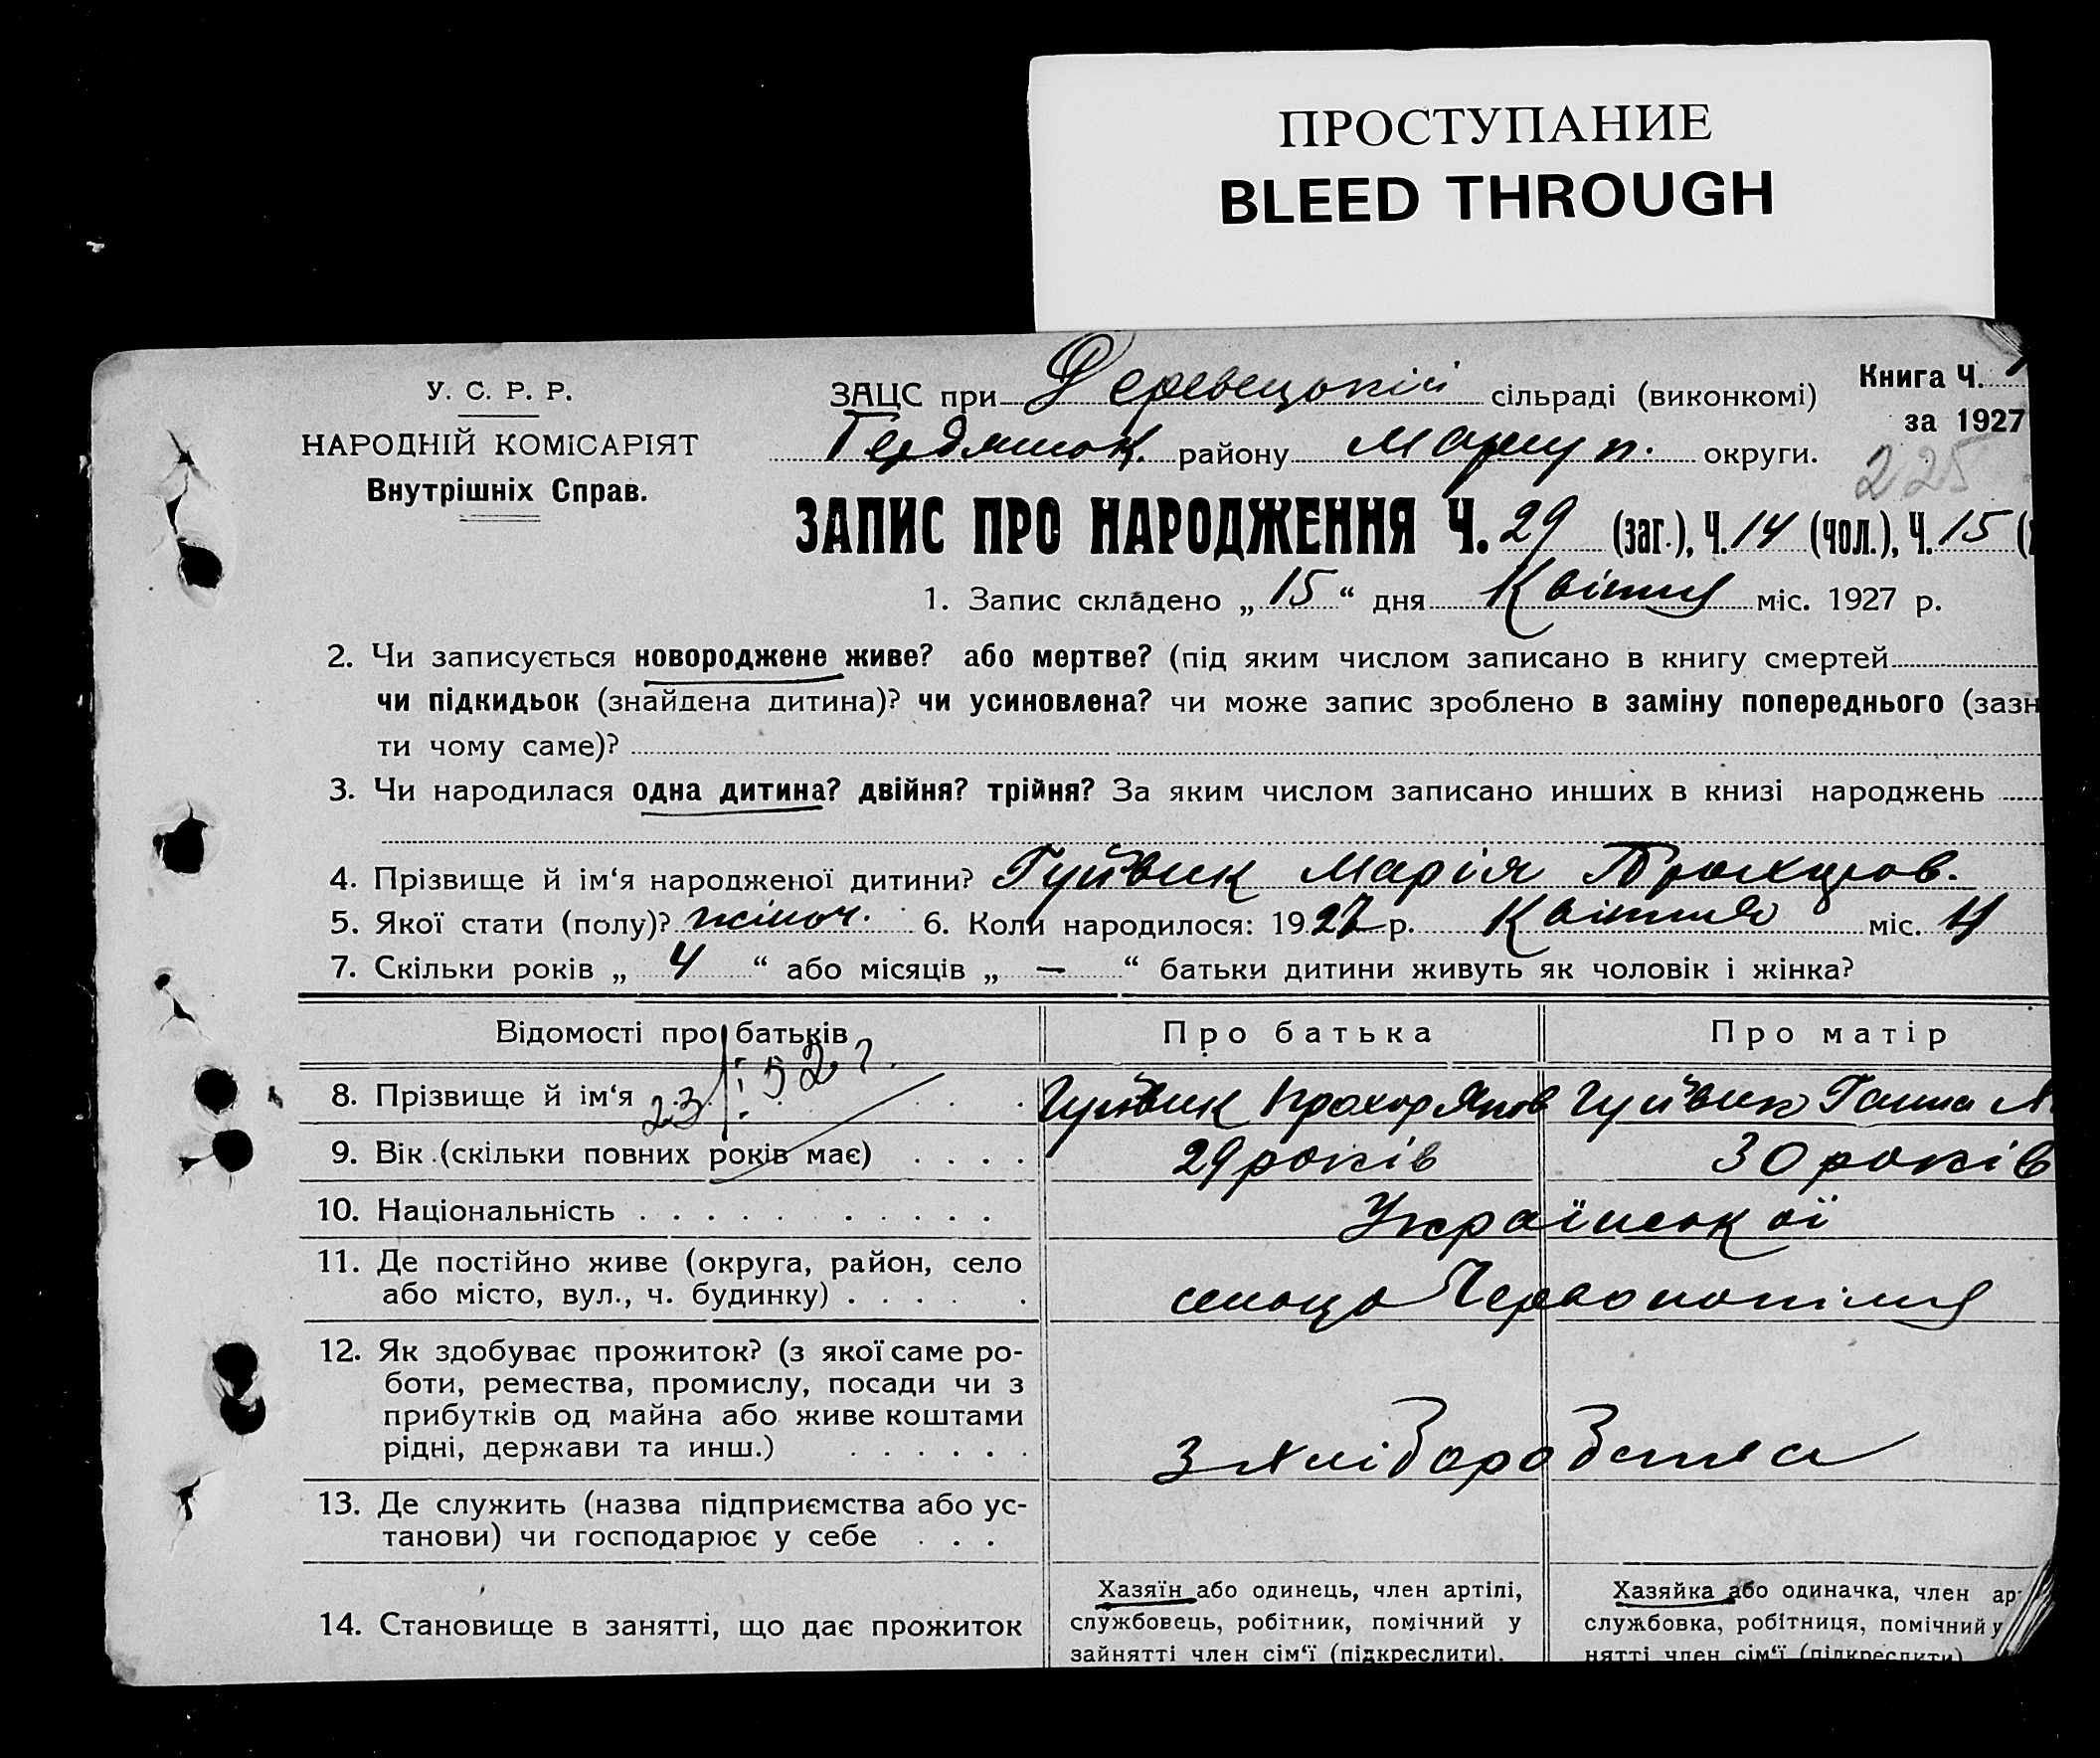 ПРОСТУПАНИЕ
BLEED THROUGH
У. С. Р. Р.
НАРОДНІЙ КОМІСАРІЯТ
Внутрішніх Справ.
ЗАЦС при Деревецькій сільраді (виконкомі)
району Маріуп. округи.
Книга Ч.
за 1927
225
ЗАПИС ПРО НАРОДЖЕННЯ Ч. 29 (заг.), Ч. 14 (чол.), Ч. 15 (
1. Запис складено „ 15 “ дня Квітня міс. 1927 р.
2. Чи записується новороджене живе? або мертве? (під яким числом записано в книгу смертей
чи підкидьок (знайдена дитина)? чи усиновлена? чи може запис зроблено в заміну попереднього (зазн
ти чому саме)?
3. Чи народилася одна дитина? двійня? трійня? За яким числом записано инших в книзі народжень
4. Прізвище й ім‘я народженої дитини? Гуйвик Марія Прохоров.
5. Якої стати (полу)? жіноч. 6. Коли народилося: 1927 р. Квітня міс. 4
7. Скільки років „ 4 “ або місяців „ — “ батьки дитини живуть як чоловік і жінка?
Відомості про батьків Про батька Про матір
8. Прізвище й ім‘я Гуйвик Прохор Гуйвик Ганна
9. Вік (скільки повних років має) 29 років 30 років
10. Національність Української
11. Де постійно живе (округа, район, село
або місто, вул., ч. будинку)
12. Як здобуває прожиток? (з якої саме ро-
боти, ремества, промислу, посади чи з
прибутків од майна або живе коштами
рідні, держави та инш.) З хліборобства
13. Де служить (назва підприємства або ус-
танови) чи господарює у себе
14. Становище в занятті, що дає прожиток
Хазяїн або одинець, член артілі,
службовець, робітник, помічний у
зайнятті член сім‘ї (підкреслити).
Хазяйка або одиначка, член ар
службовка, робітниця, помічний у
нятті член сім‘ї (підкреслити)